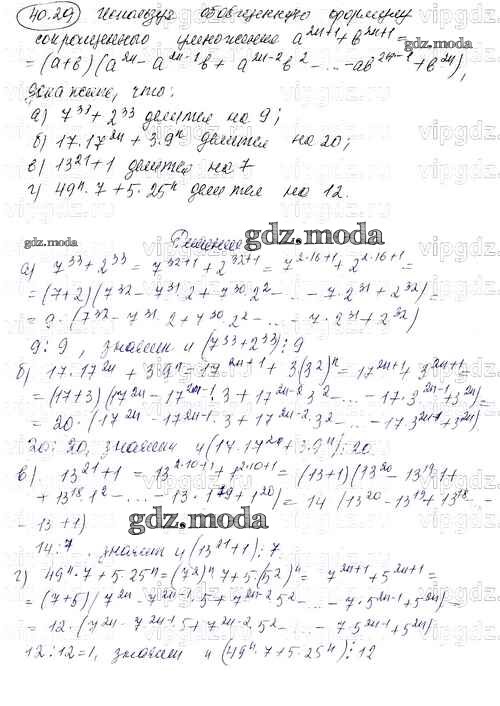 40.29 Используя обобщенную формулу
сокращенного умножения a^{2n+1}+b^{2n+1}=
=(a+b)(a^{2n}-a^{2n-1}b+a^{2n-2}b^2-...-ab^{2n-1}+b^{2n}),
докажите, что:
а) 7^{33}+2^{33} делится на 9;
б) 17·17^{2n}+3·9^n делится на 20;
в) 13^{21}+1 делится на 7
г) 49^n·7+5·25^n делится на 12.
gdz.moda
Решение
gdz.moda
а) 7^{33}+2^{33}=7^{32+1}+2^{32+1}=7^{2·16+1}+2^{2·16+1}=
=(7+2)(7^{32}-7^{31}·2+7^{30}2^2-...-7·2^{31}+2^{32})=
=9·(7^{32}-7^{31}·2+7^{30}2^2-...-7·2^{31}+2^{32})
9⋮9, значит и (7^{33}+2^{33})⋮9
б) 17·17^{2n}+3·9^n=17^{2n+1}+3(3^2)^n=17^{2n+1}+3^{2n+1}=
=(17+3)(17^{2n}-17^{2n-1}·3+17^{2n-2}·3^2-...-17·3^{2n-1}+3^{2n})=
=20·(17^{2n}-17^{2n-1}·3+17^{2n-2}·3^2-...-17·3^{2n-1}+3^{2n})
20⋮20, значит и (17·17^{2n}+3·9^n)⋮20
в) 13^{21}+1=13^{2·10+1}+1^{2·10+1}=(13+1)(13^{20}-13^{19}·1+
+13^{18}·1^2-...-13·1^{19}+1^{20})=14(13^{20}-13^{19}+13^{18}-...
-13+1)
gdz.moda
14⋮7, значит и (13^{21}+1)⋮7
г) 49^n·7+5·25^n=(7^2)^n·7+5·(5^2)^n=7^{2n+1}+5^{2n+1}=
=(7+5)(7^{2n}-7^{2n-1}·5+7^{2n-2}5^2-...-7·5^{2n-1}+5^{2n})=
=12·(7^{2n}-7^{2n-1}5+7^{2n-2}5^2-...-7·5^{2n-1}+5^{2n})
12:12=1, значит и (49^n·7+5·25^n)⋮12